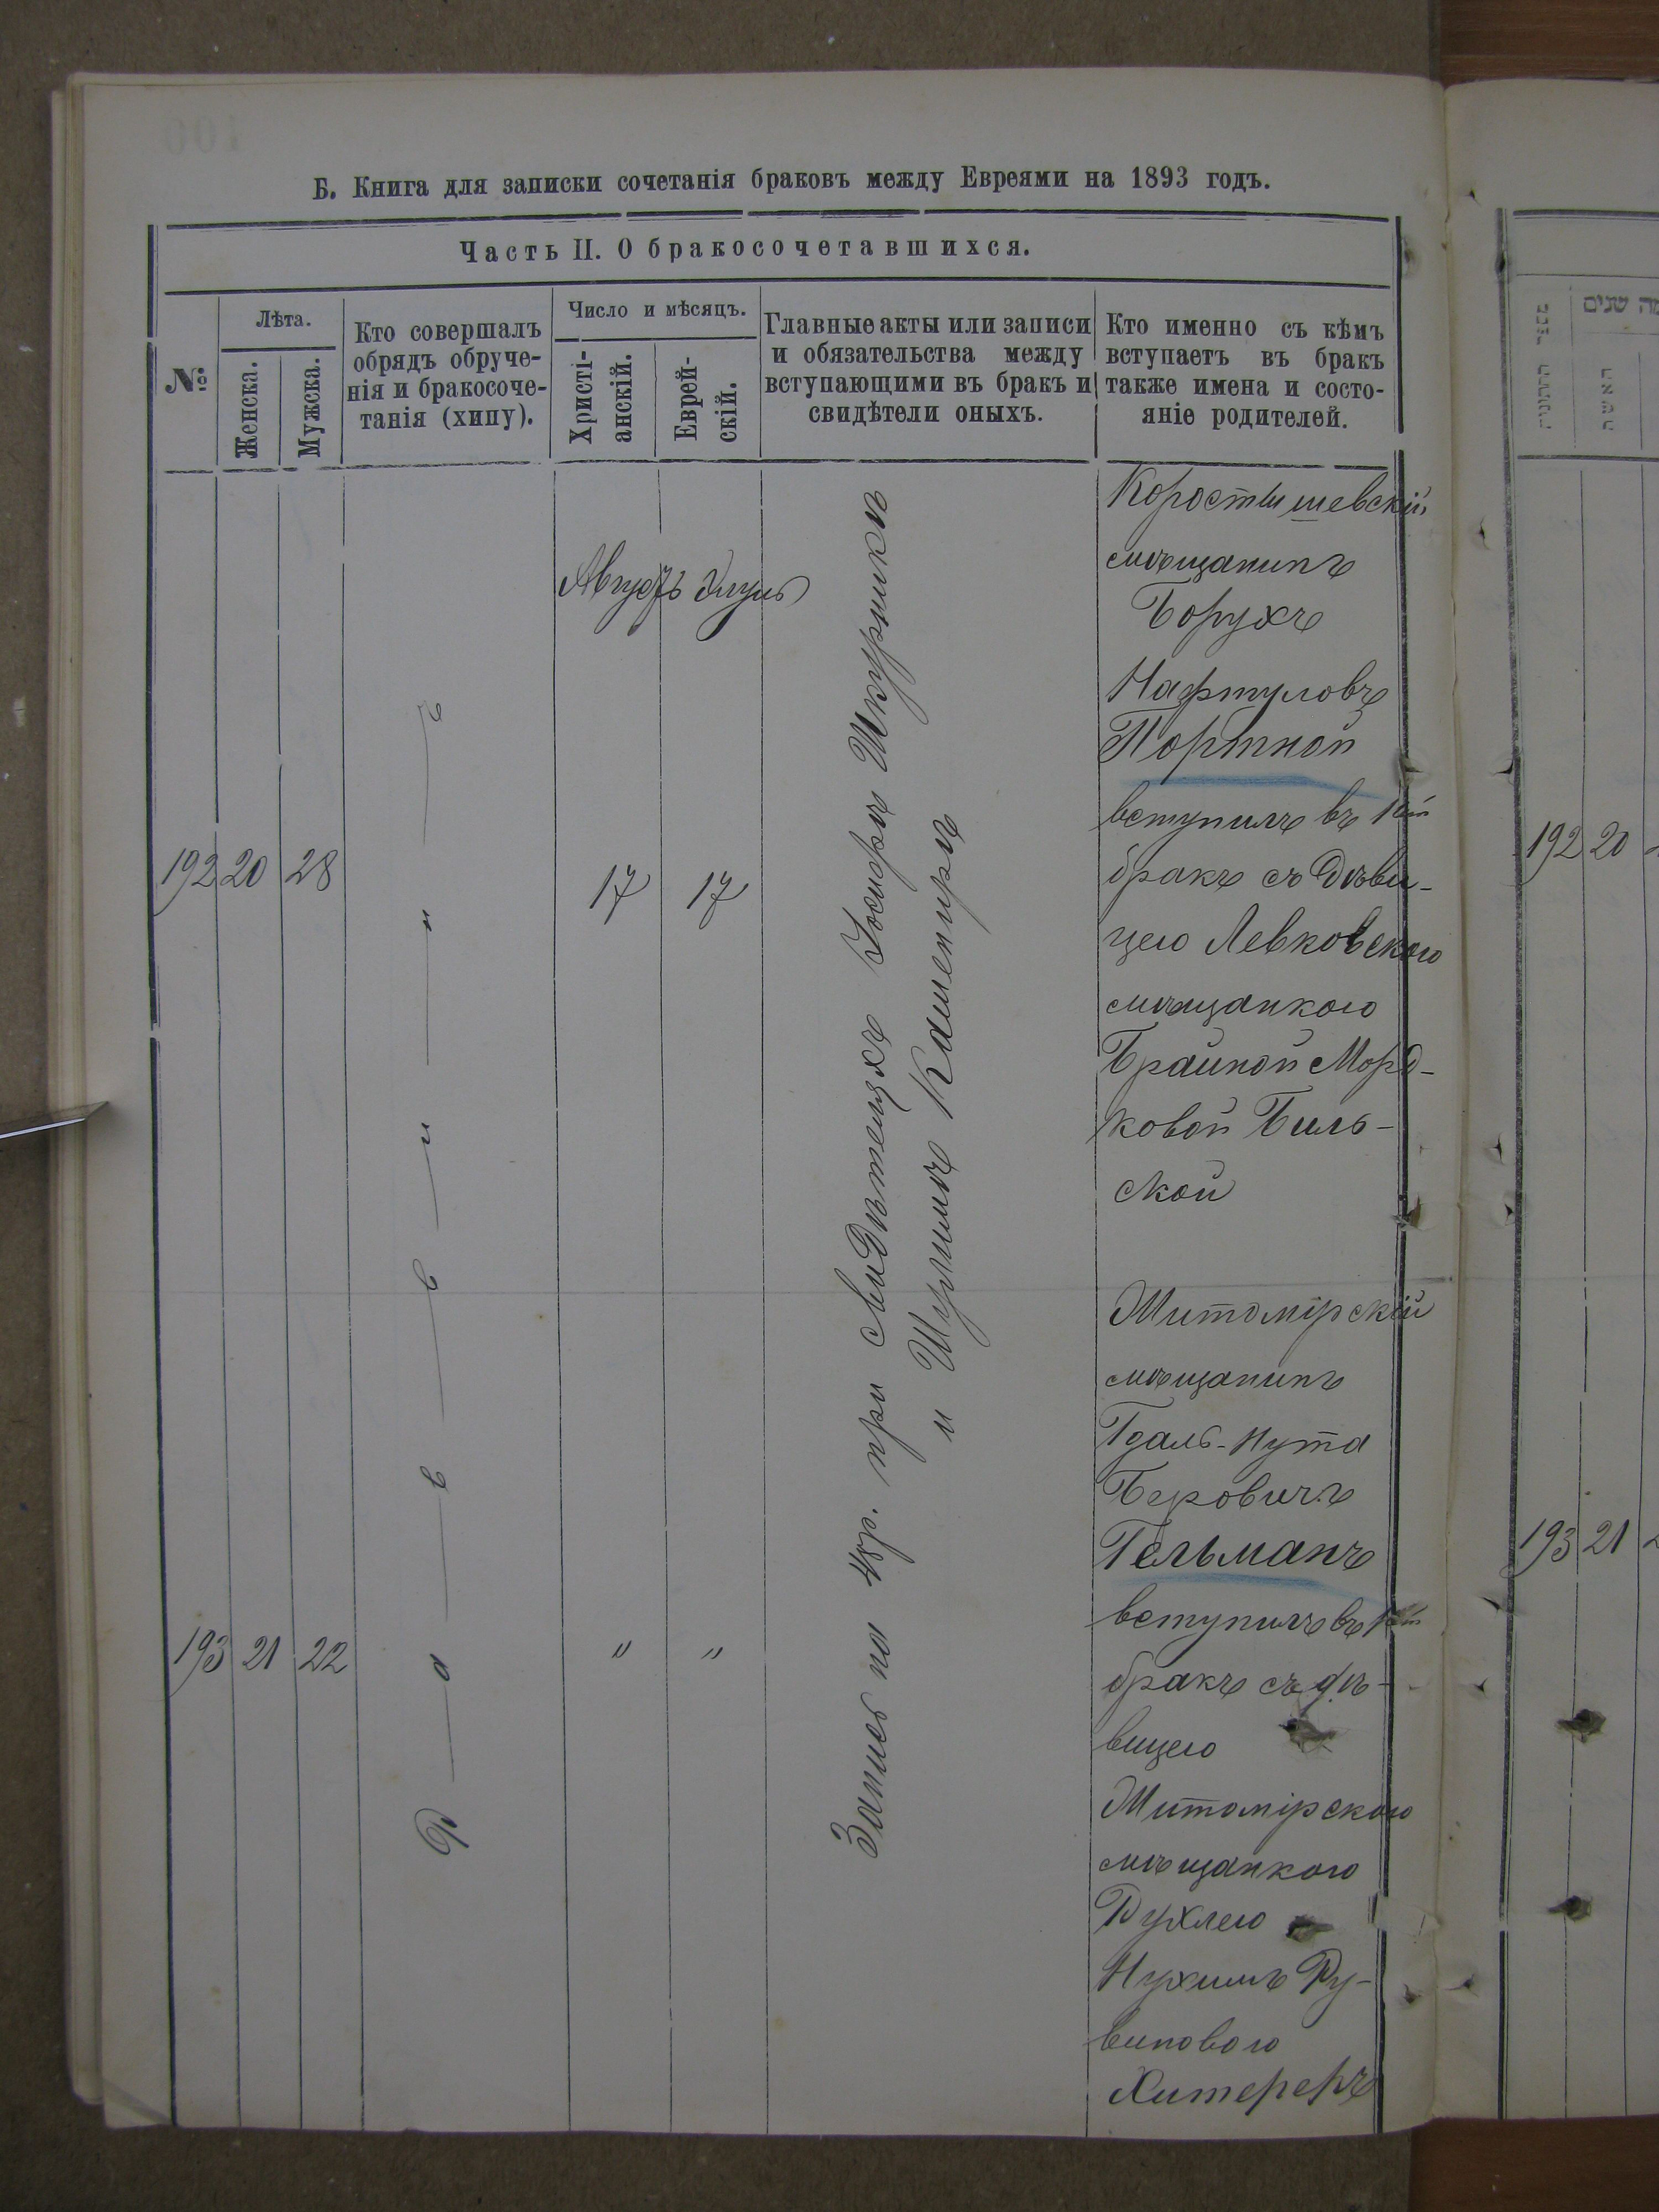 Б. Книга для записки сочетанія браковъ между Евреями на 1893 годъ.
Часть II. О бракосочетавшихся.
№
Лѣта.
Женска.
Мужска.
Кто совершалъ
обрядъ обруче-
нія и бракосоче-
танія (хипу).
Число и мѣсяцъ.
Христі-
анскій.
Еврей-
скій.
Главные акты или записи
и обязательства между
вступающими въ бракъ и
свидѣтели оныхъ.
Кто именно съ кѣмъ
вступаетъ въ бракъ
также имена и состо-
яніе родителей.
Августъ Элуль
192 20 28
17 17
Р а в в и н ъ
Запись на 48р. при свидѣтеляхъ Іосифѣ Шкурникѣ
и Шулимѣ Каменирѣ
Коростышевскій
мѣщанинъ
Борухъ
Нафтуловъ
Портной
вступилъ въ 1й
бракъ съ дѣви-
цею Левковскою
мѣщанкою
Брайной Морд-
ковой Биль-
ской
193 21 22
" "
Житомірскій
мѣщанинъ
Гдаль-Нута
Беровичъ
Гельманъ
вступилъ въ 1й
бракъ съ дѣ-
вицею
Житомірскою
мѣщанкою
Рухлею
Нухимъ Ру-
виновою
Хитереръ
192 20
193 21